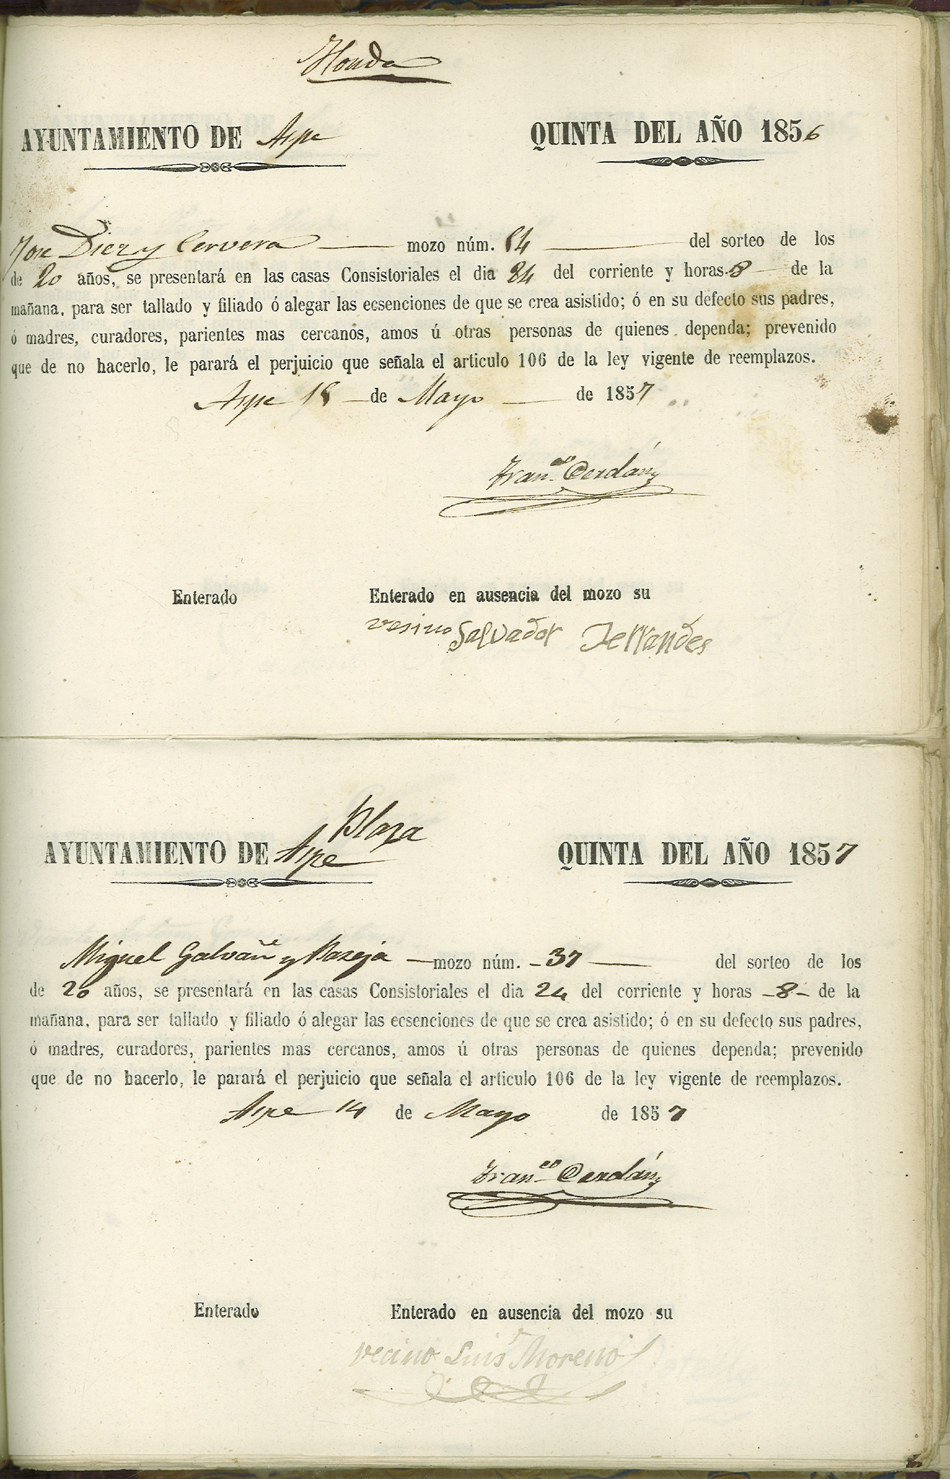 Honda
AYUNTAMIENTO DE Aspe QUINTA DEL AÑO 1856
Jose Diez y Cervera mozo núm. 84 del sorteo de los
de 20 años, se presentará en las casas Consistoriales el dia 24 del corriente y horas 8 de la
mañana, para ser tallado y filiado ó alegar las ecsenciones de que se crea asistido; ó en su defecto sus padres,
ó madres, curadores, parientes mas cercanos, amos ú otras personas de quienes dependa; prevenido
que de no hacerlo, le parará el perjuicio que señala el articulo 106 de la ley vigente de reemplazos.
Aspe 18 de Mayo de 1857
Franco. Cerdán
Enterado Enterado en ausencia del mozo su
vesino Salvador Ferrandes
Plaza
AYUNTAMIENTO DE Aspe QUINTA DEL AÑO 1857
Miguel Galvañ y Pareja mozo núm. 37 del sorteo de los
de 20 años, se presentará en las casas Consistoriales el dia 24 del corriente y horas 8 de la
mañana, para ser tallado y filiado ó alegar las ecsenciones de que se crea asistido; ó en su defecto sus padres,
ó madres, curadores, parientes mas cercanos, amos ú otras personas de quienes dependa; prevenido
que de no hacerlo, le parará el perjuicio que señala el articulo 106 de la ley vigente de reemplazos.
Aspe 14 de Mayo de 1857
Franco. Cerdán
Enterado Enterado en ausencia del mozo su
vecino Luis Moreno